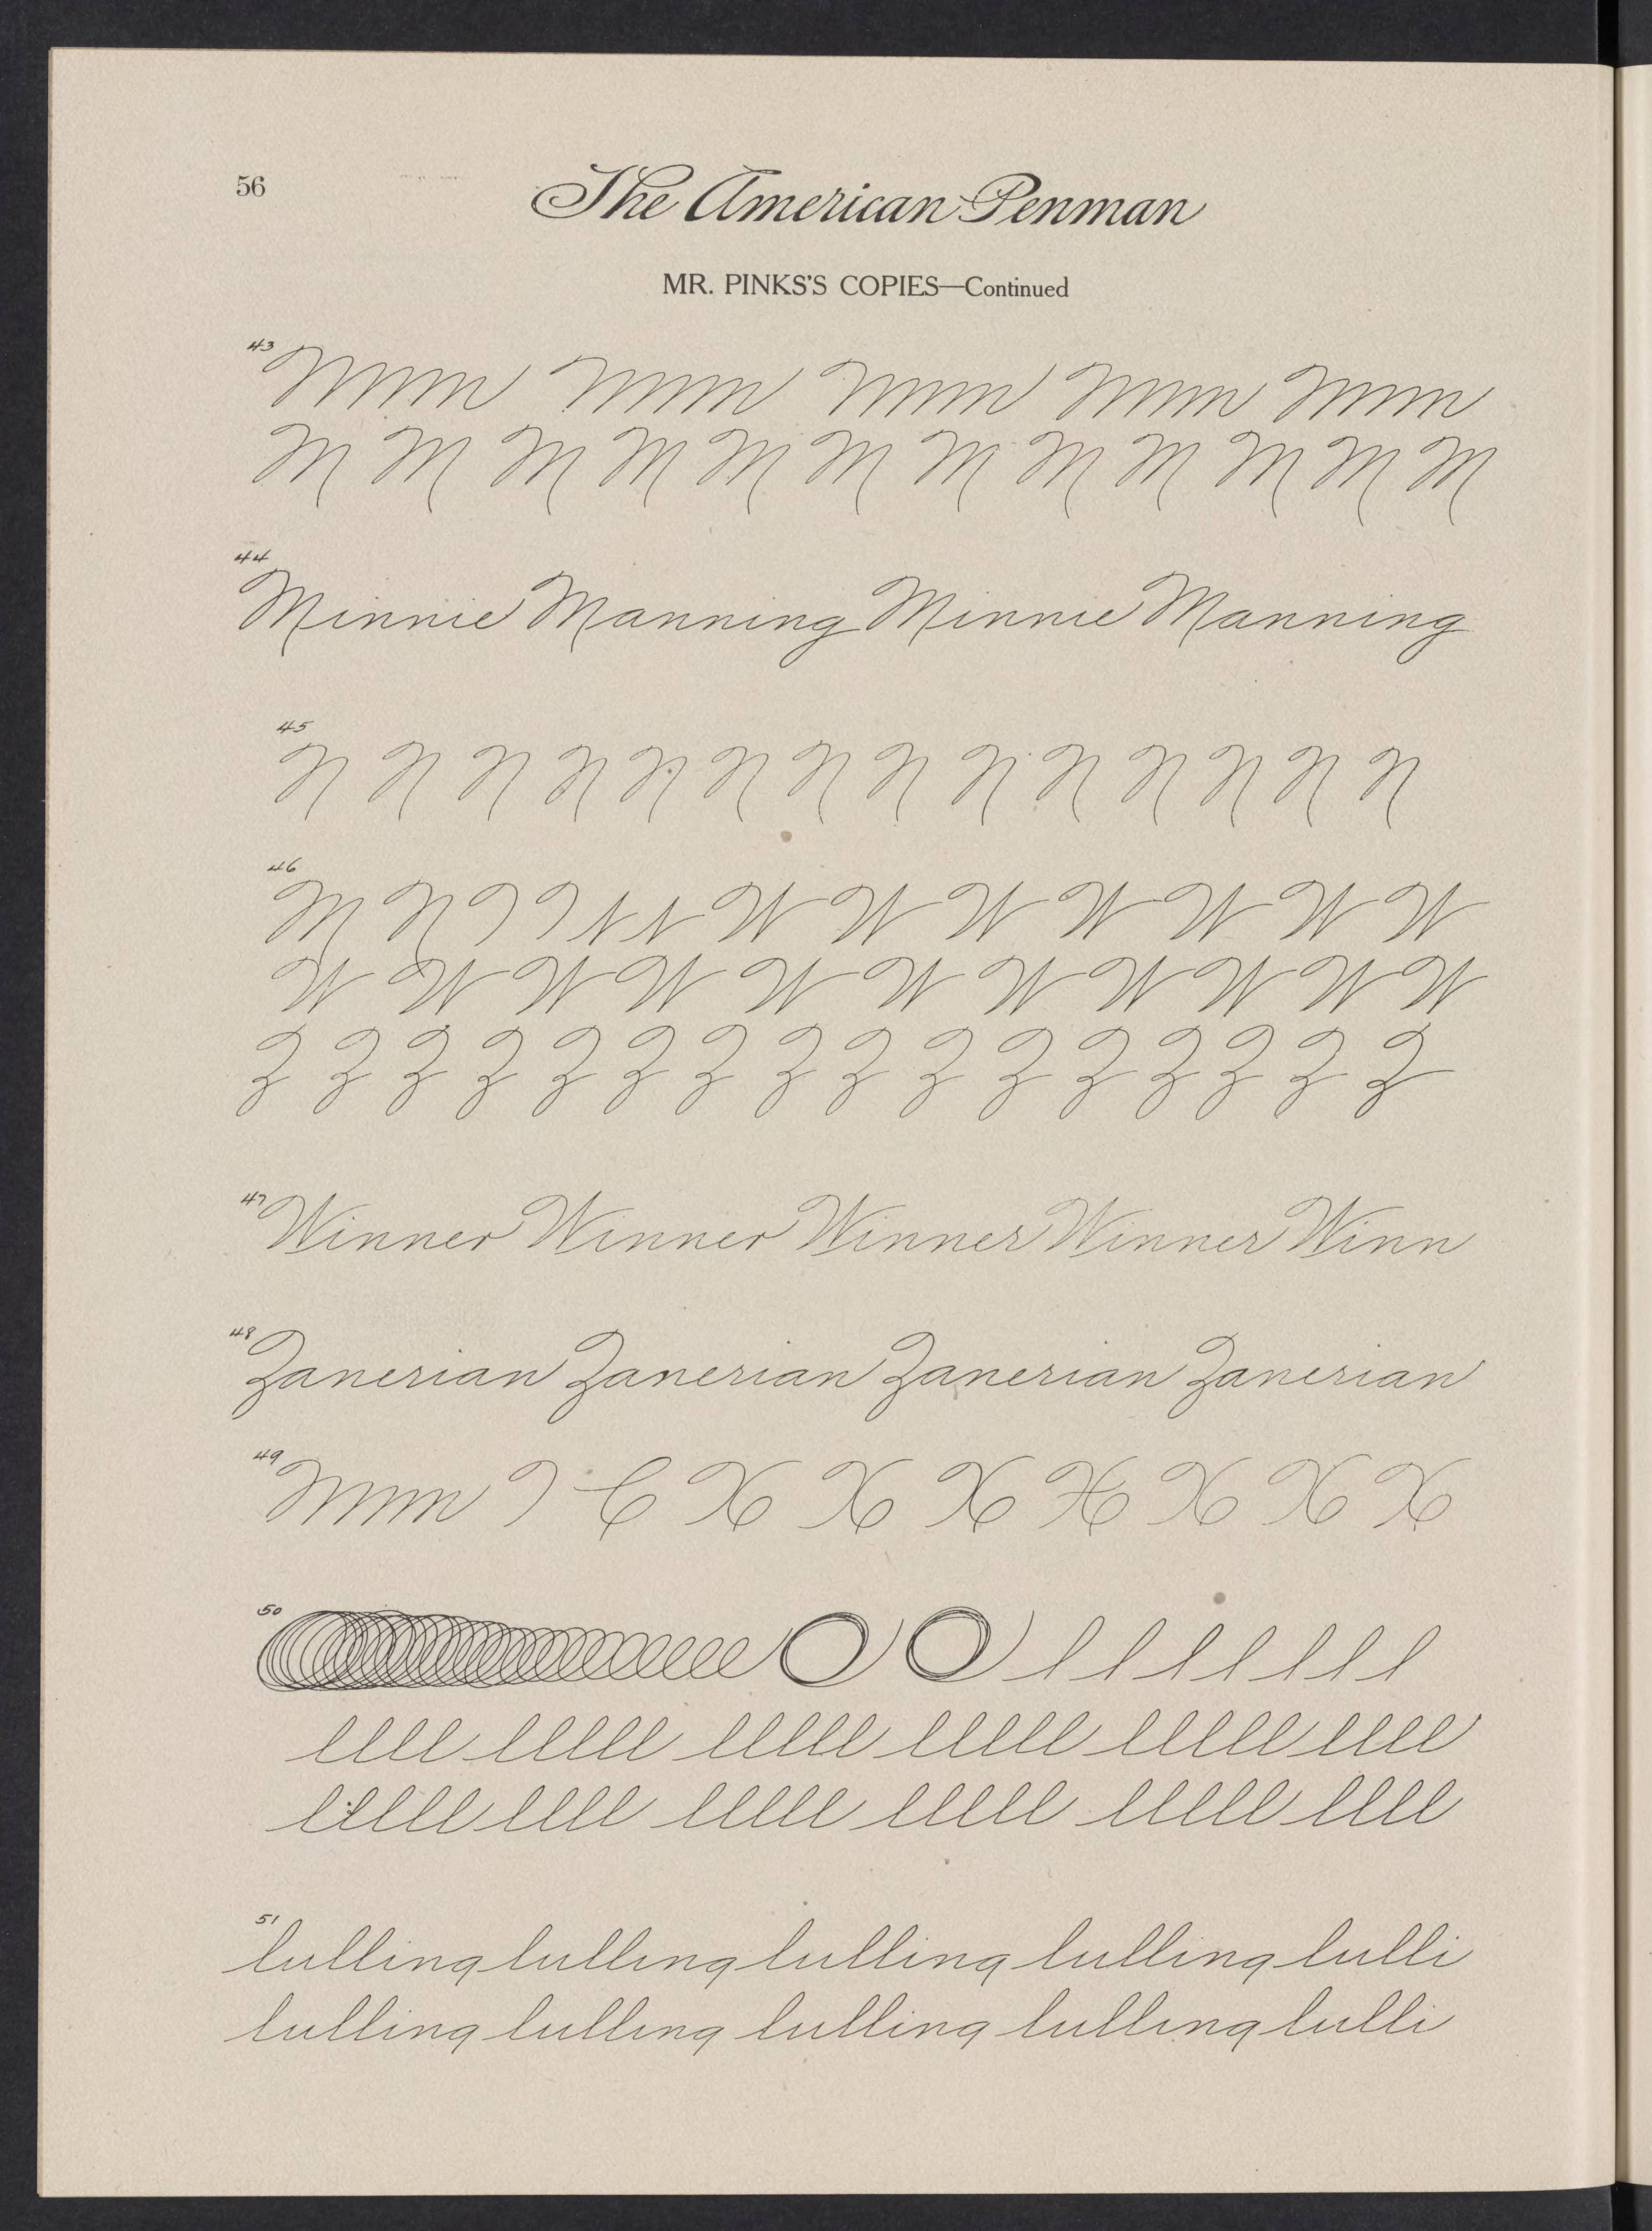 56
The American Penman
MR. PINKS'S COPIES—Continued
43
Mmm Mmm Mmm Mmm Mmm
M M M M M M M M M M M M
44
Minnie Manning Minnie Manning
45
N N N N N N N N N N N N N N
46
M N W W W W W W W
W W W W W W W W W W W
Z Z Z Z Z Z Z Z Z Z Z Z Z Z Z Z
47
Winner Winner Winner Winner Winn
48
Zanerian Zanerian Zanerian Zanerian
49
Mmm C X X X X X X X
50
O O l l l l l l l
llll lllll lllll lllll lllll llll
lllll llll lllll lllll lllll llll
51
lulling lulling lulling lulling lulli
lulling lulling lulling lulling lulli